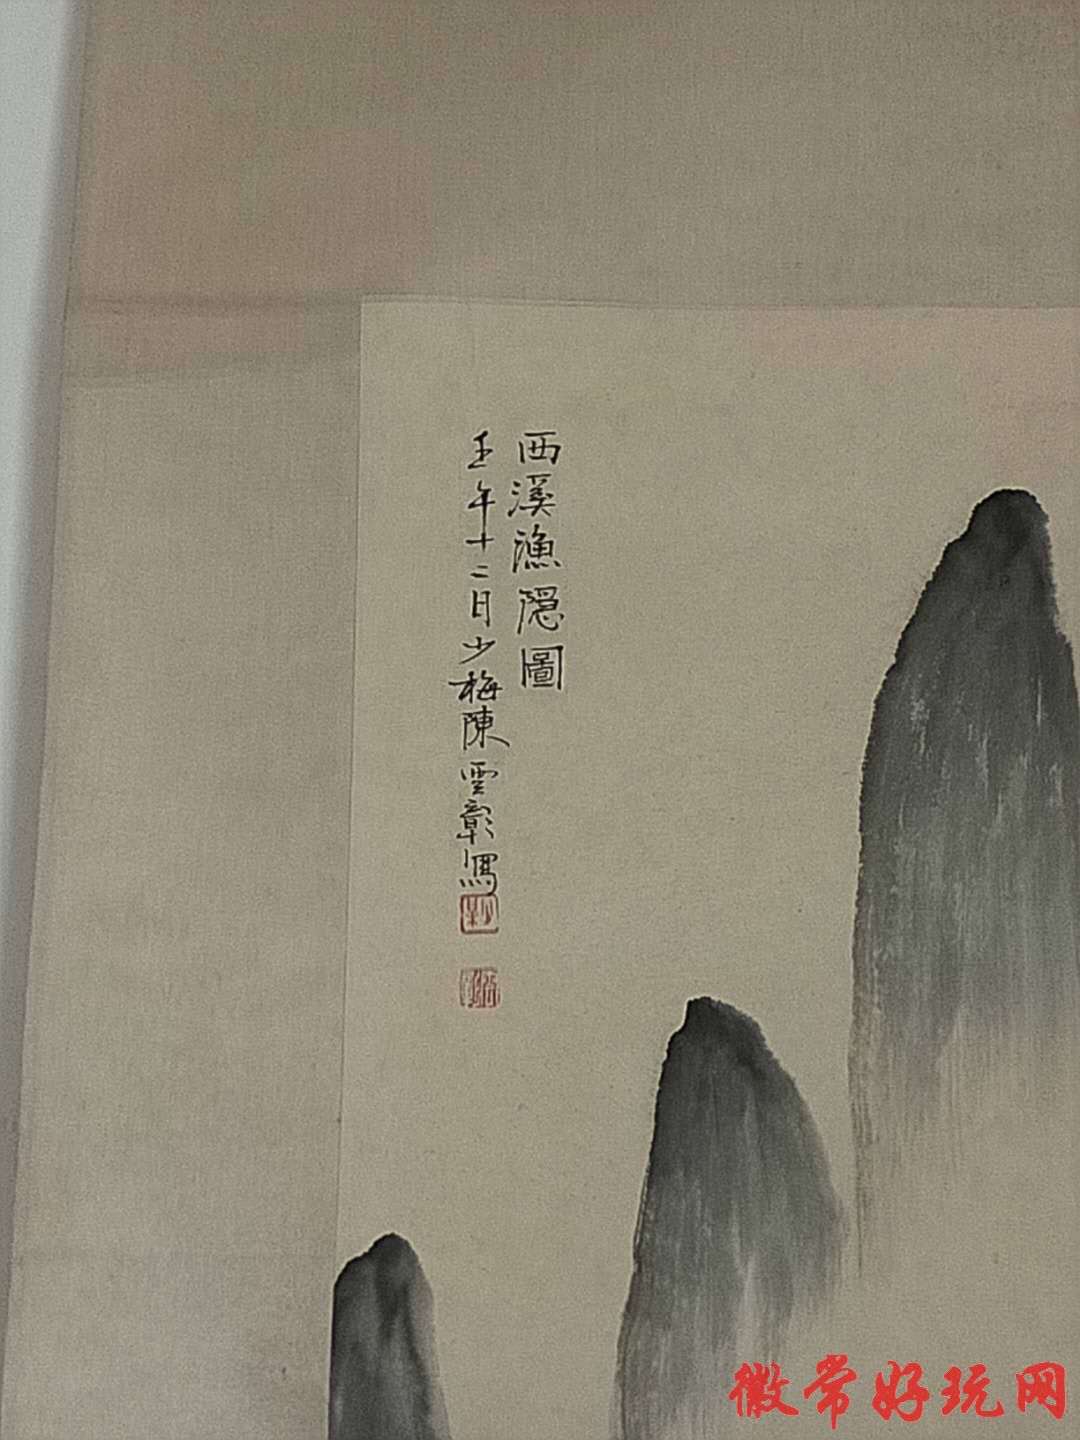 西溪漁隠圖
壬午十二月少梅陳雲彰寫
徽常好玩网